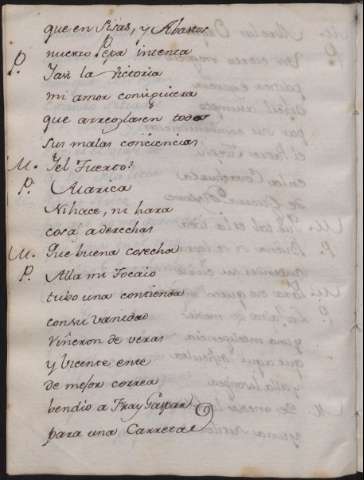 que en Risas, y Abastos
nuestro Pepa intenta
P. Jais la Victoria
mi amor consiguiera
que arreglasen todos
sus malas conciencias
M. Y el Fuerto?
P. Marica
Ni hace, ni hara
cosa a derechas
M. Que buena cosecha
P. Alla mi Tocaio
tubo una contienda
con su vanidad
viñeron de veras
y Vicente ente
de mejor correa
bendio a Fray Gaspar
para una Carreta